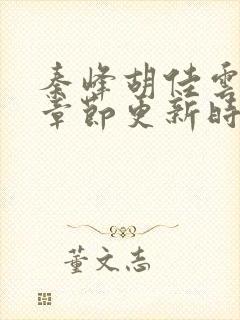 秦峰胡佳雲
章節更新時
董文志